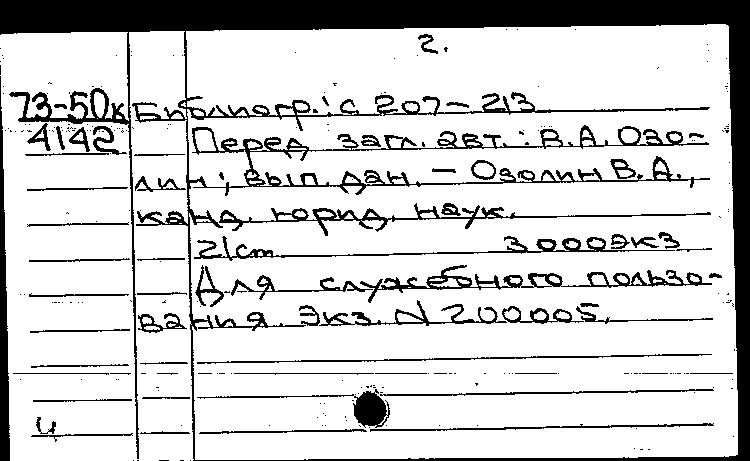 2.
73-50к Библиогр.: с 207-213
4142 Перед загл. авт.: В.А. Озо-
лин; вып. дан. - Озолин В.А.,
канд. юрид. наук.
21cm 3000экз
Для служебного пользо-
вания. Экз. N 200005.
ч